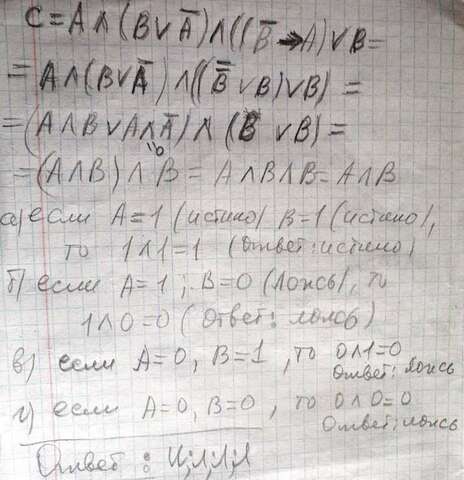 C = A ∧ (B ∨ A̅) ∧ ((B̅ → A) ∨ B =
= A ∧ (B ∨ A̅) ∧ ((B̿ ∨ B) ∨ B) =
= (A ∧ B ∨ A ∧ A̅) ∧ (B ∨ B) =
"0
= (A ∧ B) ∧ B = A ∧ B ∧ B = A ∧ B
а) если A = 1 (истино) B = 1 (истино),
то 1 ∧ 1 = 1 (Ответ: истино)
б) если A = 1 ; B = 0 (ложь), то
1 ∧ 0 = 0 (Ответ: ложь)
в) если A = 0, B = 1, то 0 ∧ 1 = 0
Ответ: ложь
г) если A = 0, B = 0, то 0 ∧ 0 = 0
Ответ: ложь
Ответ: И; Л; Л; Л